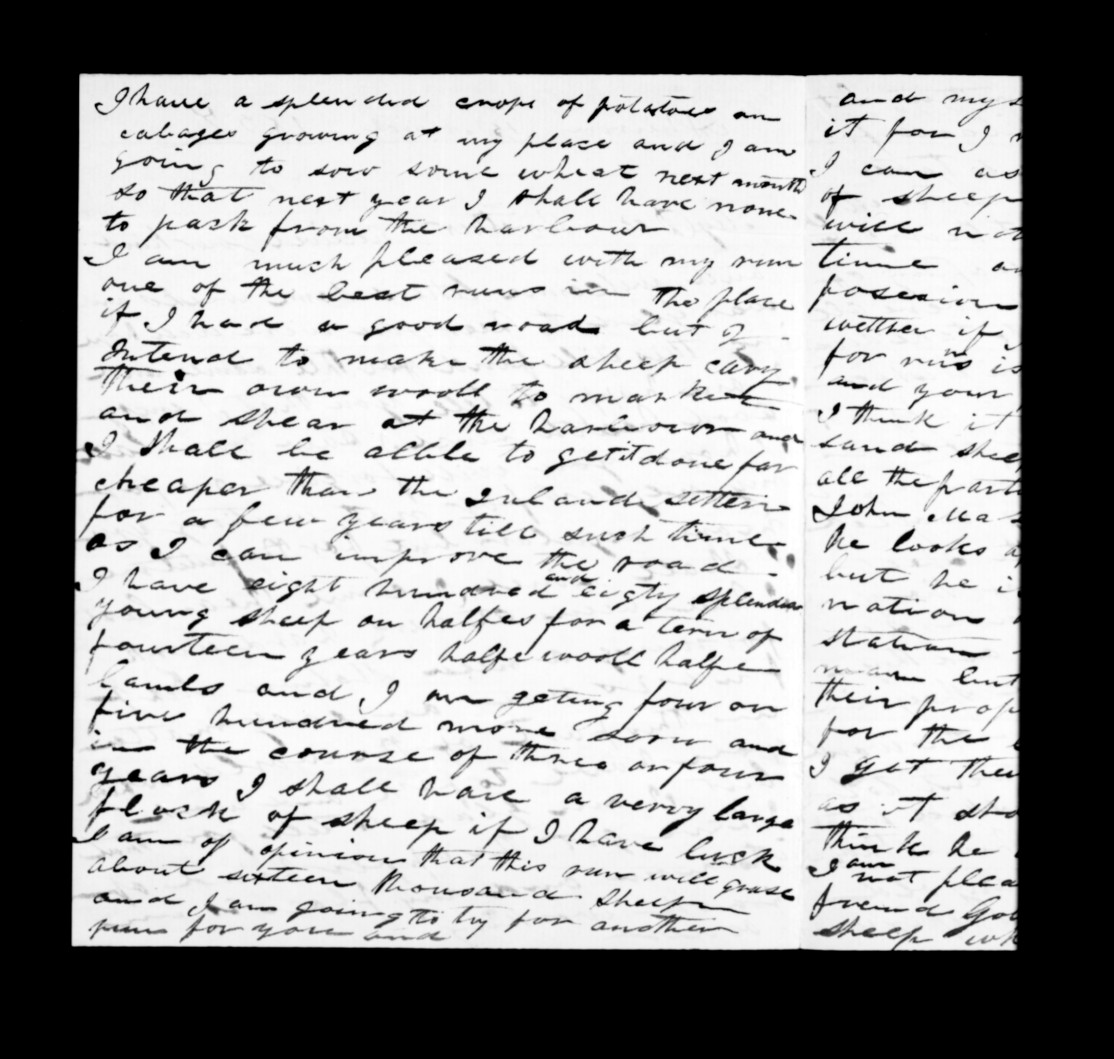 I have a splended crope of potatoes an
cabages growing at my place and I am
going to sow some wheat next month
so that next year I shall have none
to pack from the harbour
I am much pleased with my run
one of the best runs in the place
if I had a good road but I
Intend to make the sheep cary
their own wooll to market
and shear at the harbour and
I shall be alble to get it done far
cheaper than the Inland setters
for a few years till such time
as I can improve the road.
I have eight hundred and eigty splended
young sheep on halfes for a term of
fourteen years halfe wooll halfe
lambs and I am geting four or
five hundred more soon and
in the course of three or four
years I shall have a verry large
flock of sheep if I have luck
I am of opinion that this run will grase
about sixteen thousand sheep
and I am going to try for another
run for you and
and my
it for I
I can as
of sheep
will not
time
posesion
wether if
for runs is
and your
I think it
sand shee
all the part
John Ma
he looks
but he i
nation
station
man but
their prop
for the
I get the
as it sho
think he
I am not plea
frend Go
sheep wh